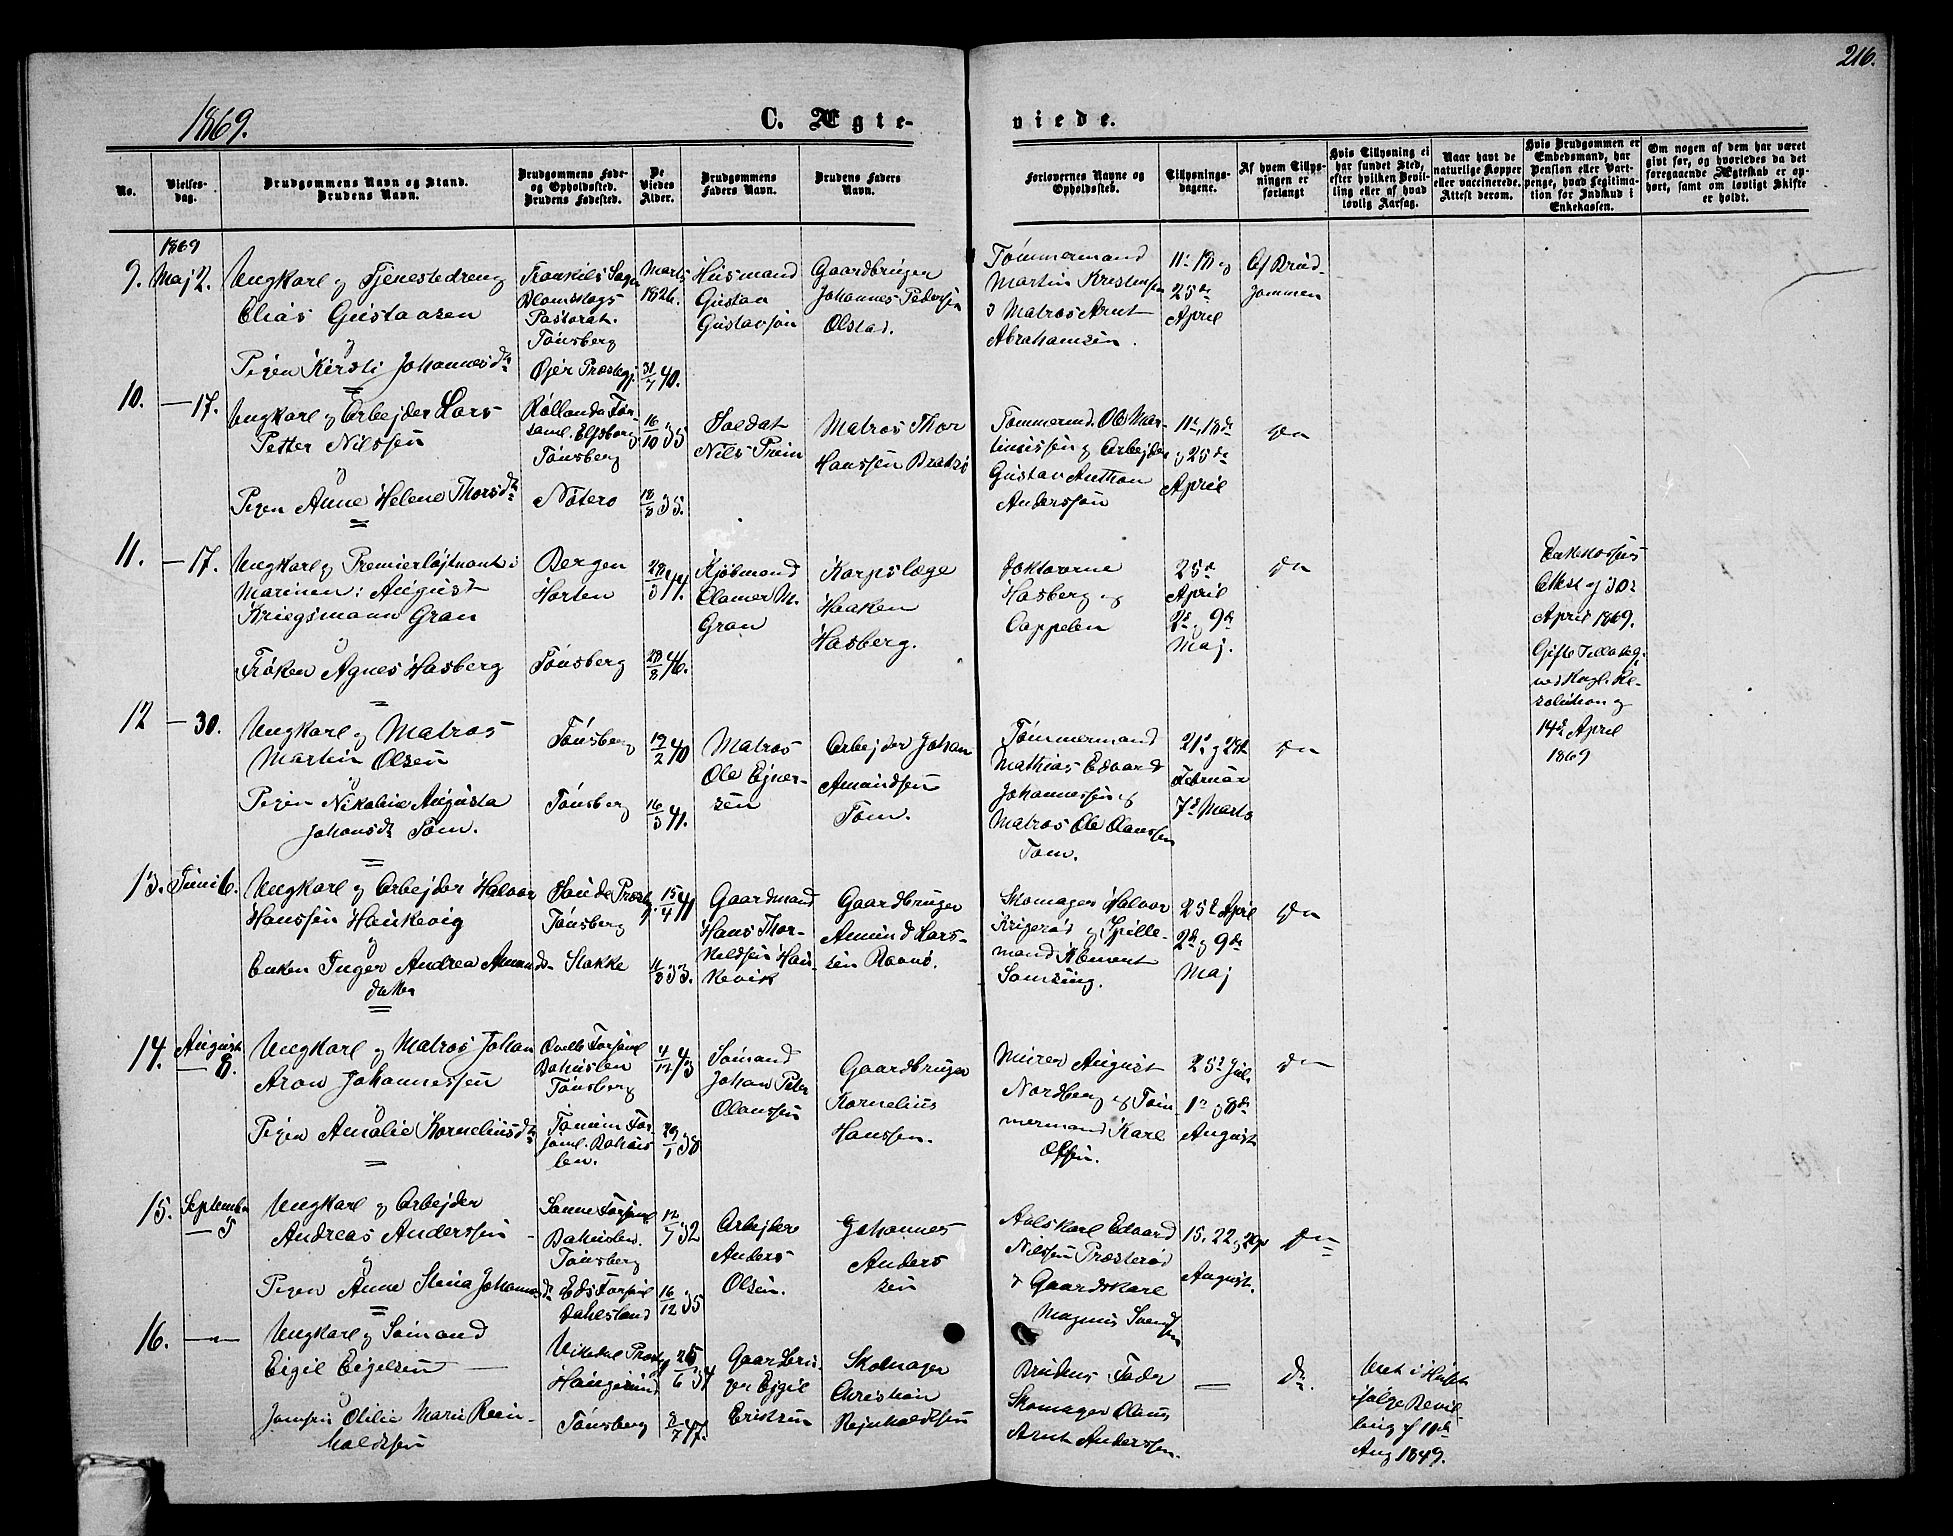 216.
1869.
C. Ægte-
viede.
No.
Vielses-
dag.
Brudgommens Navn og Stand.
Brudens Navn.
Brudgommens Føde-
og Opholdssted.
Brudens Fødested.
De
Viedes
Alder.
Brudgommens
Faders Navn.
Brudens Faders
Navn.
Forlovernes Navne og
Opholdssted.
Tillysnings-
dagene.
Af hvem Tillys-
ningen er
forlangt
Hvis Tillysning ei
har fundet Sted,
efter hvilken Bevil-
ling eller af hvad
lovlig Aarsag.
Naar havt de
naturlige Kopper
eller vaccinerede.
Attest derom.
Hvis Brudgommen er
Embedsmand, har
Pension eller Vart-
penge, hvad Legitima-
tion for Indskud i
Enkekassen.
Om nogen af dem har været
gift før, og hvorledes da det
foregaaende Ægteskab er op-
hørt, samt om lovligt Skifte
er holdt.
1869
9. Maj 2.
Ungkarl og Tjenestedreng
Elias Gustavsen
&
Pigen Kirsti Johannesdr
Pastorat.
Tønsberg
Øjer Præstegj.
Marts
1826.
31/7 40.
Husmand
Gustav
Gustavsøn
Gaardbruger
Johannes Pedersen
Olstad.
Tømmermand
Martin Kristensen
& Matros Arnt
Abrahamsen.
11te 18 og
25de
April
Af Brud-
gommen
10. — 17.
Ungkarl og Arbejder Lars
Petter Nilssen
&
Pigen Anne Helene Thorsdr
Tønsberg
Nøterø
16/10 35
18/8 35.
Soldat
Nils Prim
Matros Thor
Hanssen
Tømmermd. Ole Mar-
tinissen og Arbejder
Gustav Anthon
Anderssøn
11te, 18de
og 25de
April
do
11. — 17.
Ungkarl og Premierløjtnant i
Marinen: August
Kriegsmann Gran
&
Frøken Agnes Hasberg
Bergen
Horten
Tønsberg
28/3 44.
28/8 46.
Kjøbmand
M.
Gran
Korpslæge
Haaken
Hasberg.
Doktorerne
Hasberg og
Cappelen
25de
April
2de og 9de
Maj.
do
Enkekasses
Attest af 30te
April 1869.
Resolution af
14de April
1869
12 — 30.
Ungkarl og Matros
Martin Olsen
&
Pigen Nikoline Augusta
Johansdr Tom.
Tønsberg
Tønsberg
19/2 40
16/3 41.
Matros
Ole Ejner-
sen
Arbejder Johan
Amundsen
Tom.
Tømmermand
Mathias Edvard
Johannessen og
Matros Ole Olaussen
Tom.
21de og 28de
Februar
7de Marts
do
13. Juni 6.
Ungkarl og Arbejder Halvor
Hanssen Haukevig
&
Enken Inger Andrea Amunds-
datter
Tønsberg
Stokke
15/4 41
11/8 33.
Gaardmand
Hans Thor-
kildsen Hau-
kevik
Gaardbruger
Amund Lars-
sen
Skomager Halvor
og Spille-
mand Klement
25de April
2de og 9de
Maj
do
14. August
— 8.
Ungkarl og Matros Johan
Aron Johannessen
&
Pigen Amalie Korneliusdr
Bahuslen
Tønsberg
Bahus-
len.
4/12 43
29/1 38
Sømand
Johan Peter
Olaussen
Gaardbruger
Kornelius
Hanssen.
Murer August
Nordberg og Tøm-
mermand Karl
25de Juli
1te og 8de
August
do
15. September
— 5
Ungkarl og Arbejder
Andreas Anderssen
&
Pigen Anne Stina Johannesdr
Bahuslen.
Tønsberg
12/7 32
16/12 35
Arbejder
Anders
Olsen.
Johannes
Anders
sen
Avlskarl Edvard
Nilssen Præsterød
& Gaardskarl
Magnus Svendsen
15. 22. og 29de
August.
do
16. —
Ungkarl og Sømand
Eigil Eigelsen
&
Jomfru Otilie Marie Rein-
holdtsen
Vikedal Præstgj
Haugesund
Tønsberg
25/6 34
8/7 47.
Gaardbru-
ger Ejgil
Eriksen
Skomager
Christian
Rejnholdtsen
Brudens Fader
Skomager Olaus
Arnt Anderssen.
—
do
følge Bevil
ling af
Aug 1849.